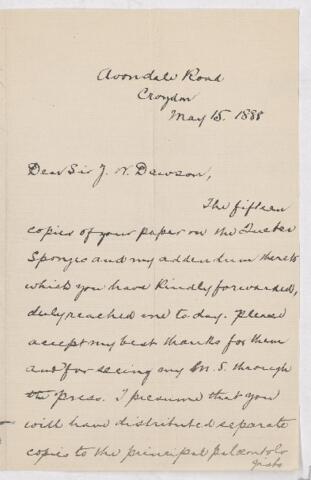 Avondale Road
Croydon
May 15. 1888
Dear Sir J. W. Dawson,
The fifteen
copies of your paper on the Quebec
Sponges and my addendum thereto
which you have kindly forwarded,
duly reached me to-day. Please
accept my best thanks for them
and for seeing my M.S. through
the press. I presume that you
will have distributed separate
copies to the principal palaeontolo
gists